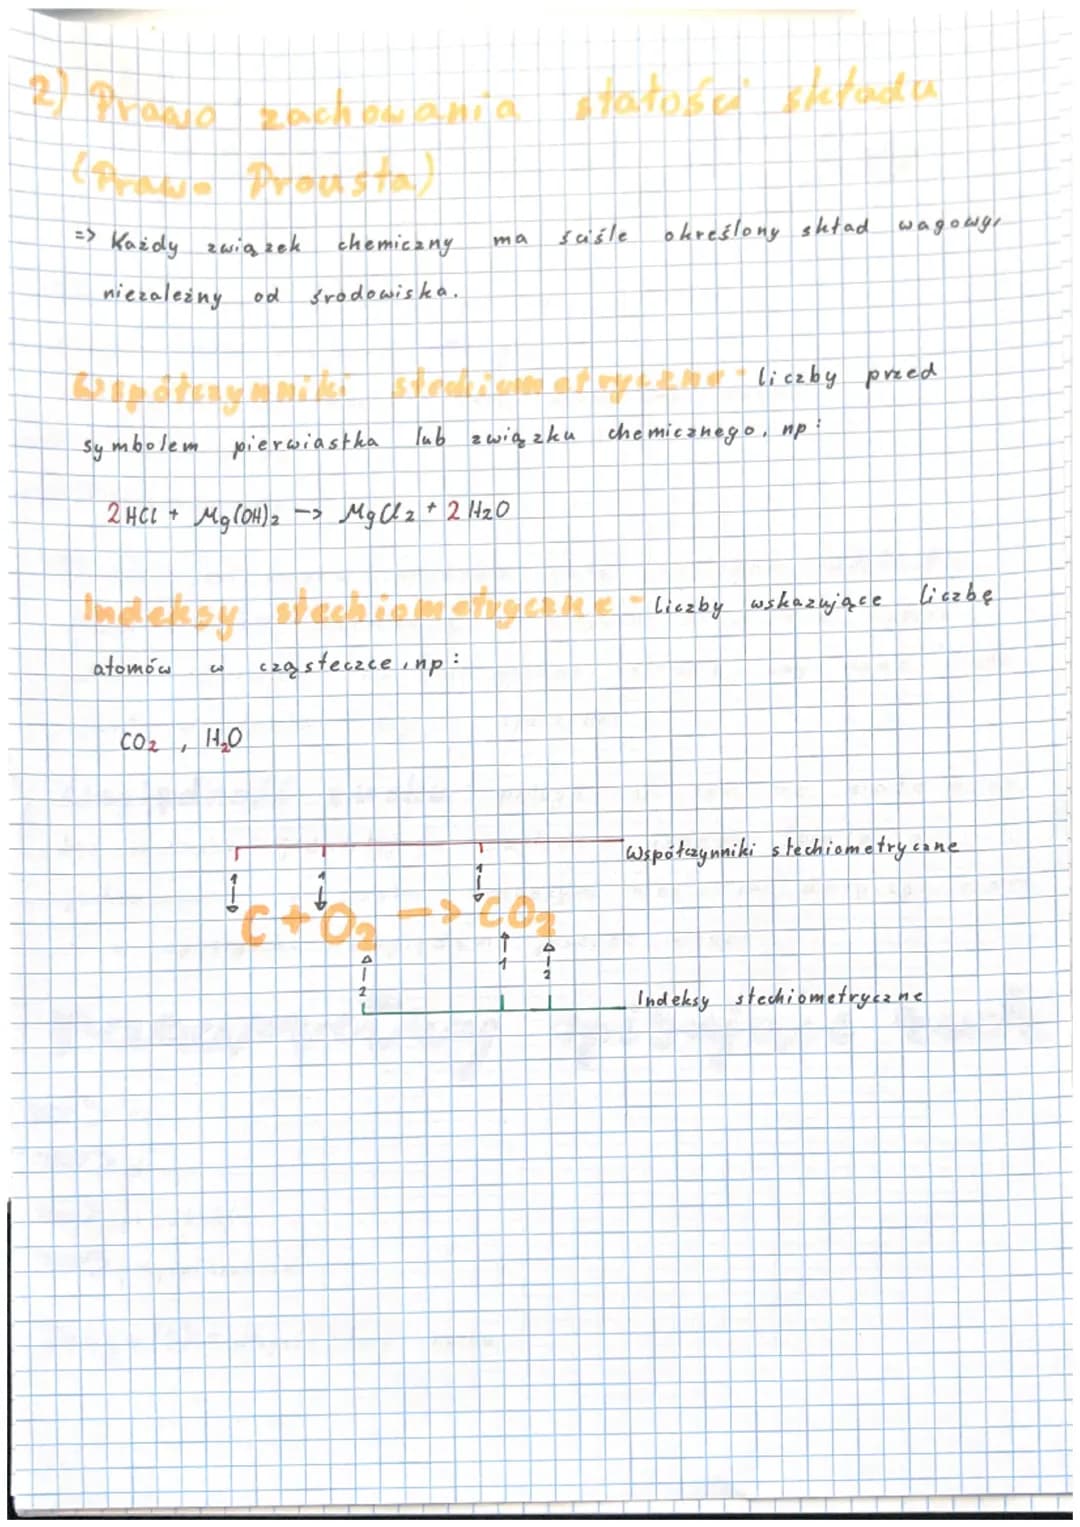 2) Prawo zachowania stałości składu
(Prawo Prousta)
=> Każdy związek chemiczny ma ściśle określony skład wagowy,
niezależny od środowiska.
Współczynniki stechiometryczne - liczby przed
symbolem pierwiastka lub związku chemicznego, np:
2HCl + Mg(OH)2 -> MgCl2 + 2H2O
Indeksy stechiometryczne - liczby wskazujące liczbę
atomów w cząsteczce, np:
CO2, H2O
Współczynniki stechiometryczne
1 1 1
C + O2 -> CO2
2 1 2
Indeksy stechiometryczne